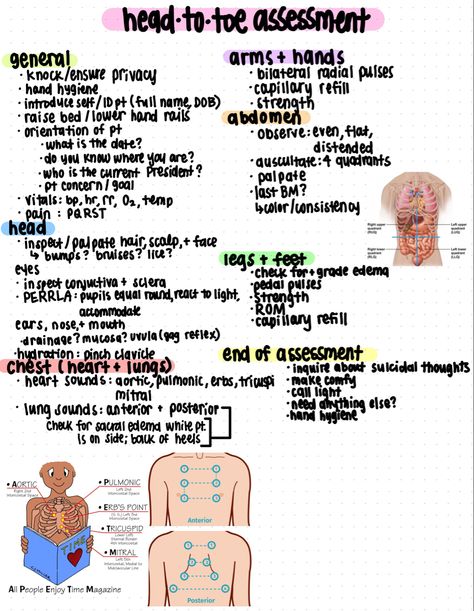 head·to·toe assessment
general
· knock/ensure privacy
· hand hygiene
· introduce self/ID pt (full name, DOB)
· raise bed/lower hand rails
· orientation of pt
· what is the date?
· do you know where you are?
· who is the current president?
· pt concern/goal
· vitals: bp, hr, rr, O2, temp
· pain: PQRST
head
· inspect/palpate hair, scalp, + face
↳ bumps? bruises? lice?
eyes
· inspect conjuctiva + sclera
· PERRLA: pupils equal round, react to light,
accommodate
ears, nose, + mouth
· drainage? mucosa? uvula (gag reflex)
· hydration: pinch clavicle
chest (heart + lungs)
· heart sounds: aortic, pulmonic, erbs, tricuspi
mitral
· lung sounds: anterior + posterior
check for sacral edema while pt.
is on side; balk of heels
arms + hands
· bilateral radial pulses
· capillary refill
· strength
abdomen
· observe: even, flat,
distended
· auscultate: 4 quadrants
· palpate
· last BM?
↳ color/consistency
Right upper quadrant (RUQ)
Left upper quadrant (LUQ)
Right lower quadrant (RLQ)
Left lower quadrant (LLQ)
legs + feet
· check for + grade edema
· pedal pulses
· strength
· ROM
· capillary refill
end of assessment
· inquire about suicidal thoughts
· make comfy
· call light
· need anything else?
· hand hygiene
AORTIC
Right 2nd
Intercostal Space
PULMONIC
Left 2nd
Intercostal Space
ERB'S POINT
Intercostal Space
TRICUSPID
Lower Left
Sternal Border
4th Intercostal
MITRAL
Left 5th
Intercostal, Medial to
Midclavicular Line
TIME
All People Enjoy Time Magazine
1 2
4 3
5 6
Anterior
1 2
4 3
Posterior